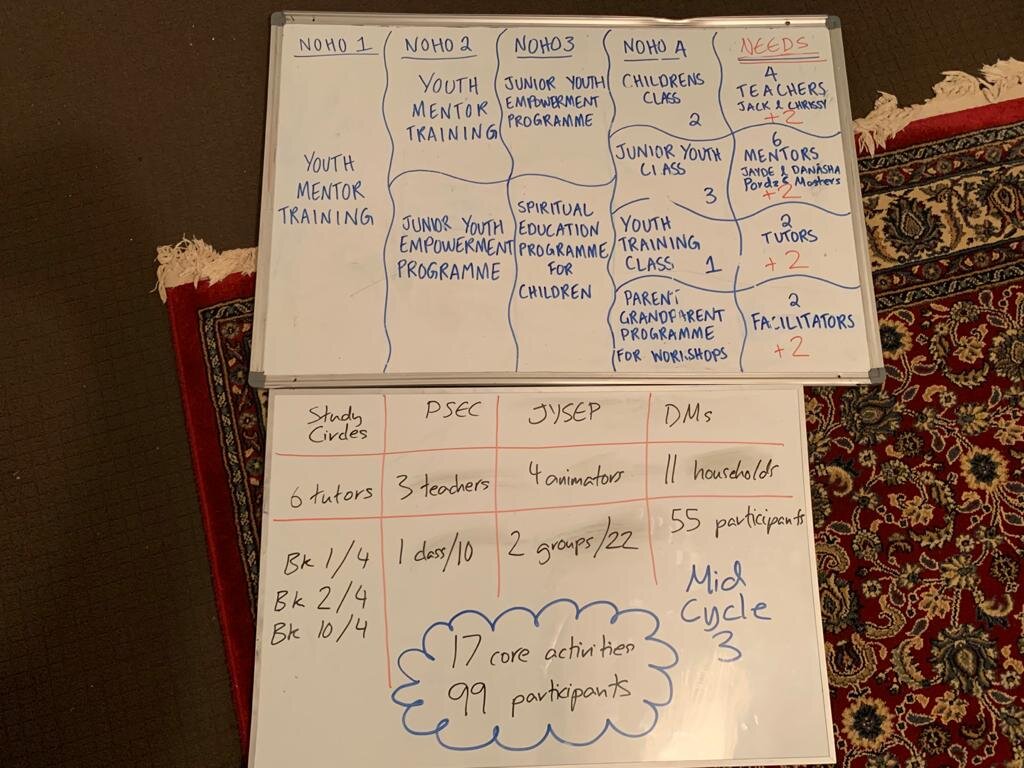 NOHO 1
YOUTH
MENTOR
TRAINING
NOHO 2
YOUTH
MENTOR
TRAINING
JUNIOR YOUTH
EMPOWERMENT
PROGRAMME
NOHO3
JUNIOR YOUTH
EMPOWERMENT
PROGRAMME
SPIRITUAL
EDUCATION
PROGRAMME
FOR
CHILDREN
NOHO 4
CHILDRENS
CLASS
2
JUNIOR YOUTH
CLASS
3
YOUTH
TRAINING
CLASS 1
PARENT
GRANDPARENT
PROGRAMME
FOR WORKSHOPS
NEEDS
4
TEACHERS
JACK & CHRISSY
+2
6
MENTORS
JAYDE & DANASHA
Masters
+2
2
TUTORS
+2
2
FACILITATORS
+2
Study
Circles
PSEC
JYSEP
DMs
6 tutors
3 teachers
4 animators
11 households
Bk 1/4
Bk 2/4
Bk 10/4
1 class/10
2 groups/22
55 participants
17 core activities
99 participants
Mid
Cycle
3